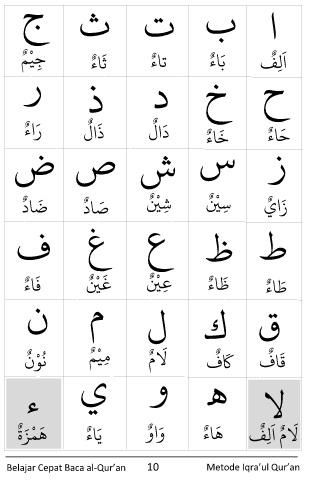 ا ب ت ث ج
اَلِفٌ بَاءٌ تاءٌ ثَاءٌ جِيْمٌ
ح خ د ذ ر
حَاءٌ خَاءٌ دَالٌ ذَالٌ رَاءٌ
ز س ش ص ض
زَايٌ سِيْنٌ شِيْنٌ صَادٌ ضَادٌ
ط ظ ع غ ف
طَاءٌ ظَاءٌ عِيْنٌ غَيْنٌ فَاءٌ
ق ك ل م ن
قَافٌ كَافٌ لَامٌ مِيْمٌ نُوْنٌ
لا ه و ي ء
لَامُ اَلِفٌ هَاءٌ وَاوٌ يَاءٌ هَمْزَةٌ
Belajar Cepat Baca al-Qur'an 10 Metode Iqra'ul Qur'an